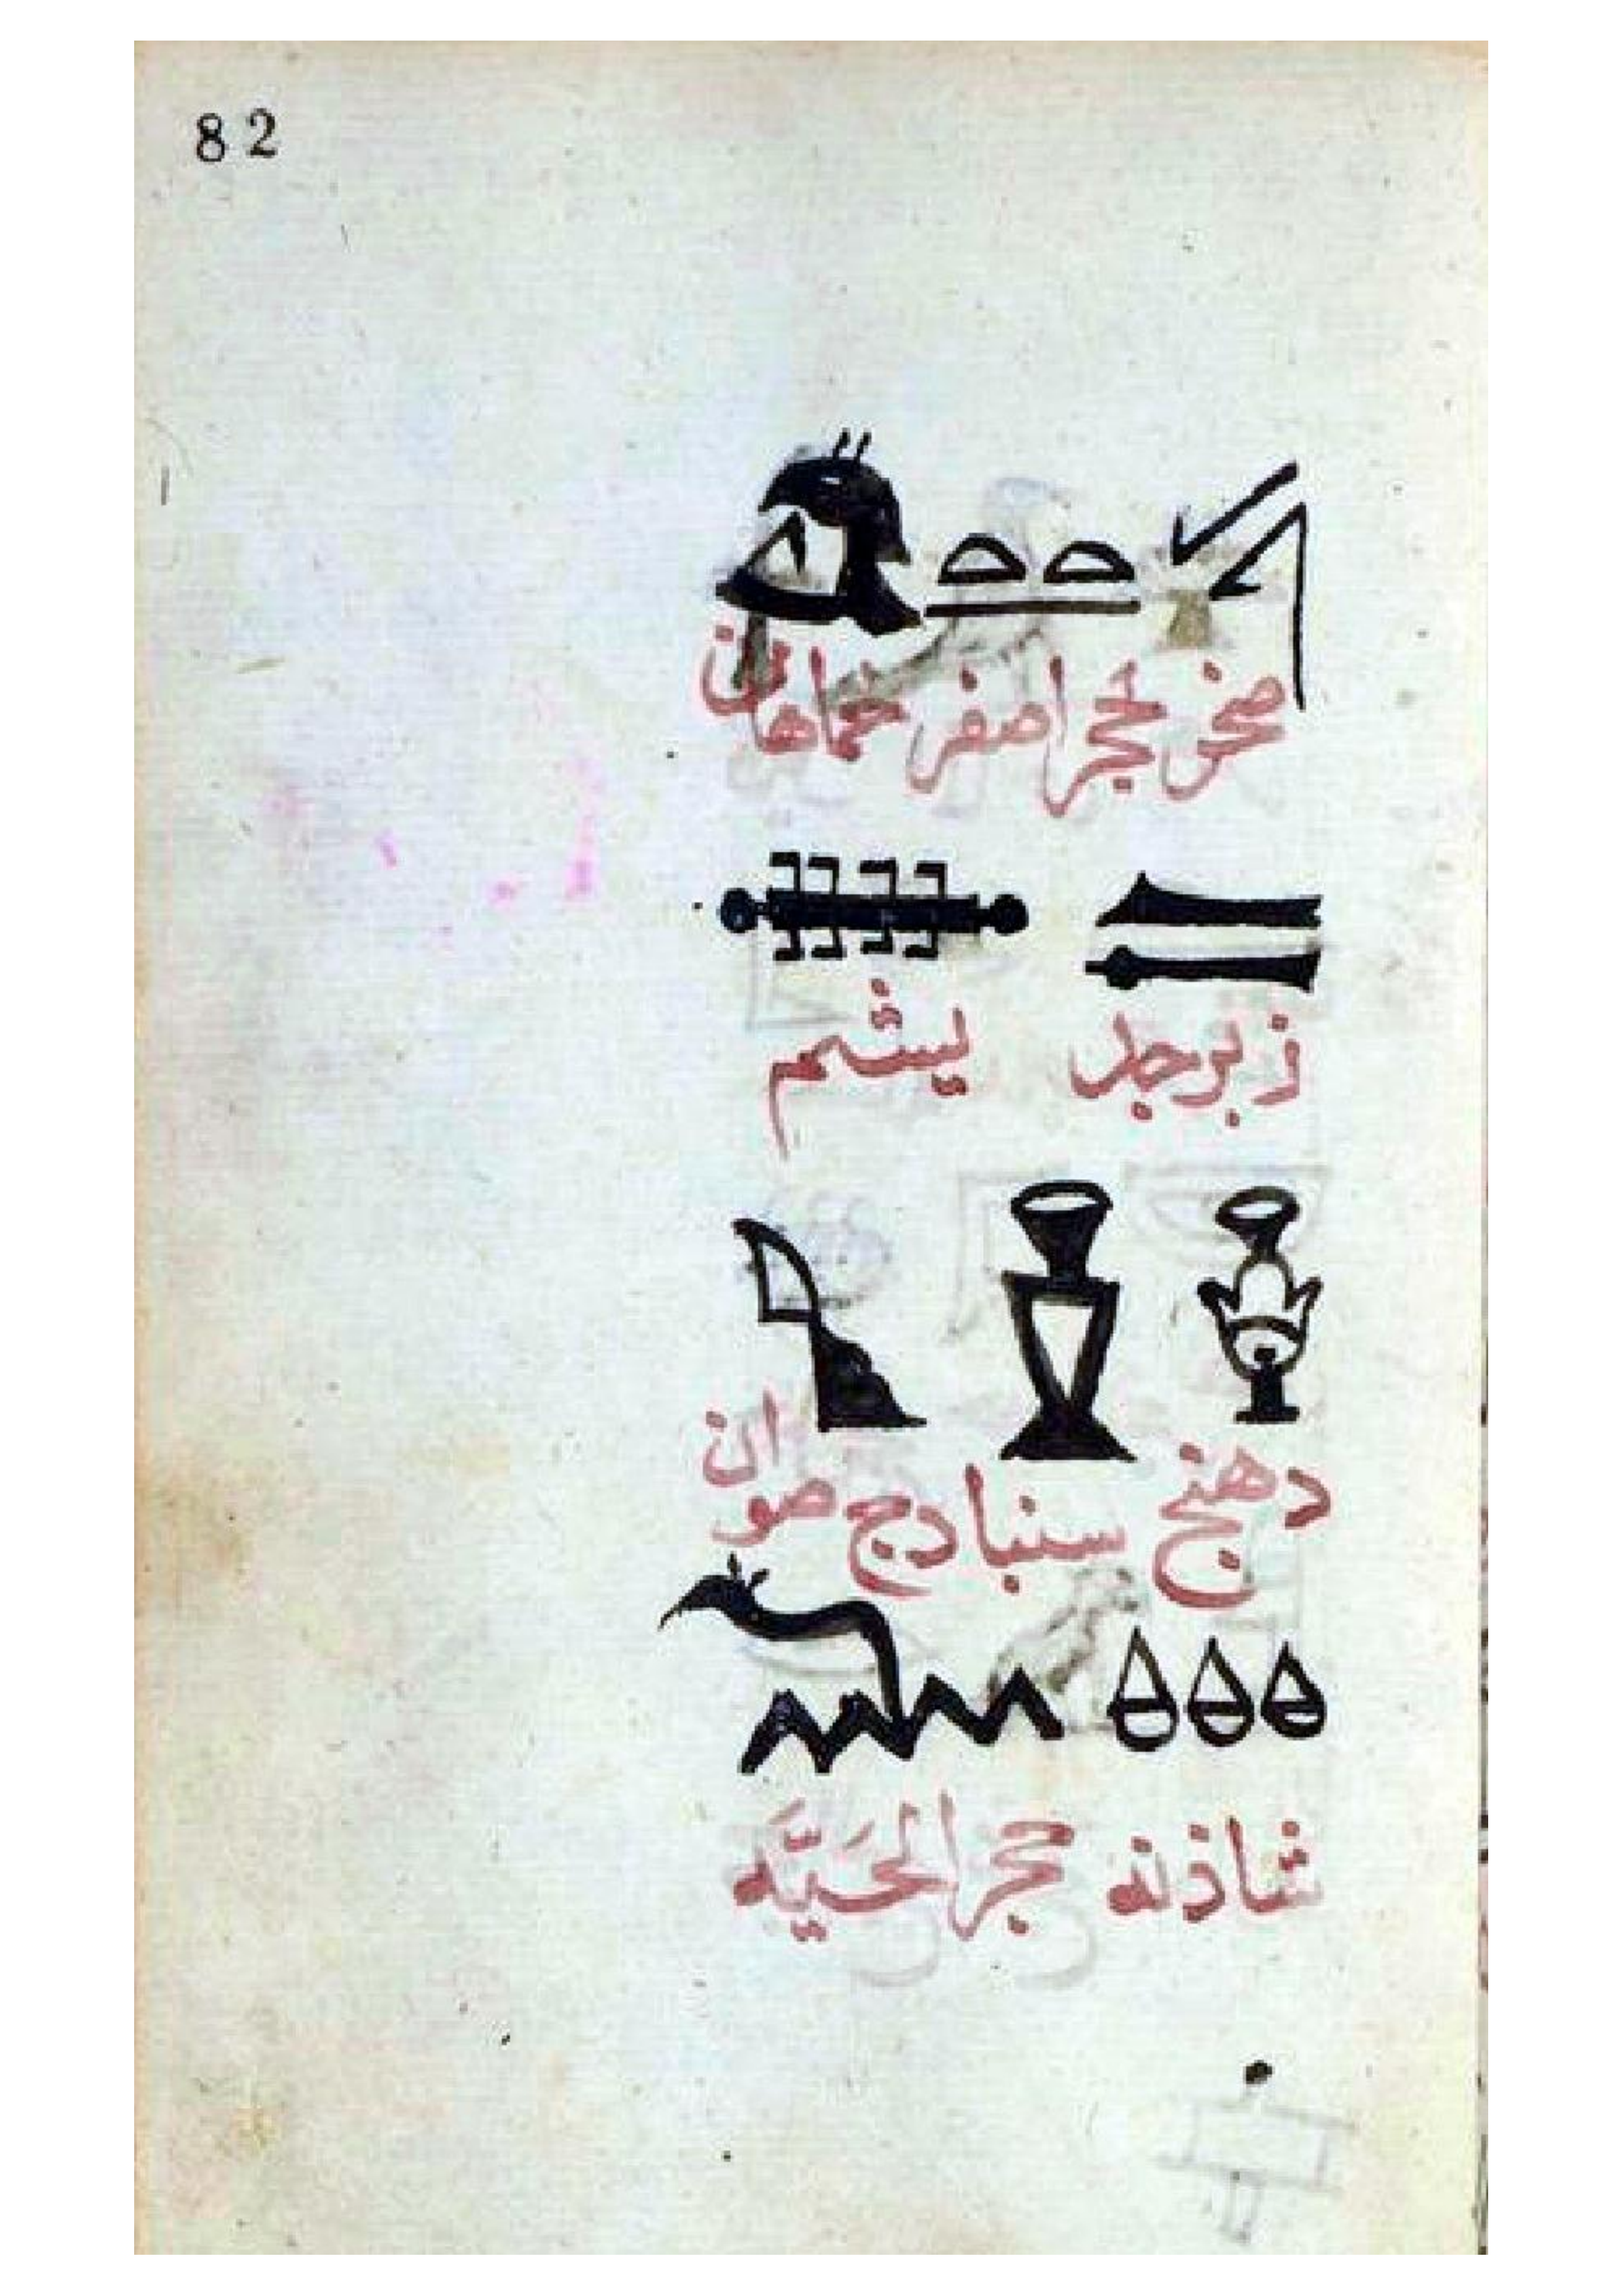 82
صخر لحجر اصفر خماهان
زبرجد يشم
دهنج سنبادج صوان
شاذنه حجر الحيَّه